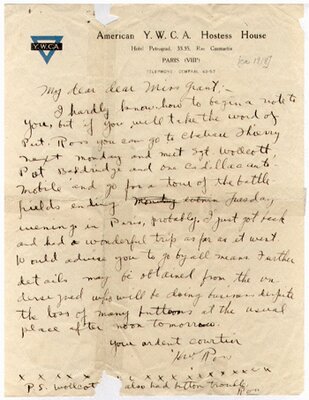 Y.W.C.A.
American Y.W.C.A. Hostess House
Hotel Petrograd, 33.35, Rue Caumartin
PARIS (VIIIe)
TELEPHONE CENTRAL
My dear dear Miss Grant,-
I hardly know how to begin a note to
you, but if you will take the word of
Pvt. Ross you can go to Chateau Thierry
next Monday and meet Sgt. Wolcott
Pvt Baldridge and one Cadillac auto-
mobile and go for a tour of the battle
fields ending Monday Tuesday
evening in Paris, probably. I just got back
and had a wonderful trip as far as it went.
Would advise you to go by all means. Further
details may be obtained from the un-
dersigned who will be doing business despite
the loss of many buttons at the usual
place after noon tomorrow.
your ardent courtier
HW Ross
P.S. Wollcott also had button trouble.
Ross